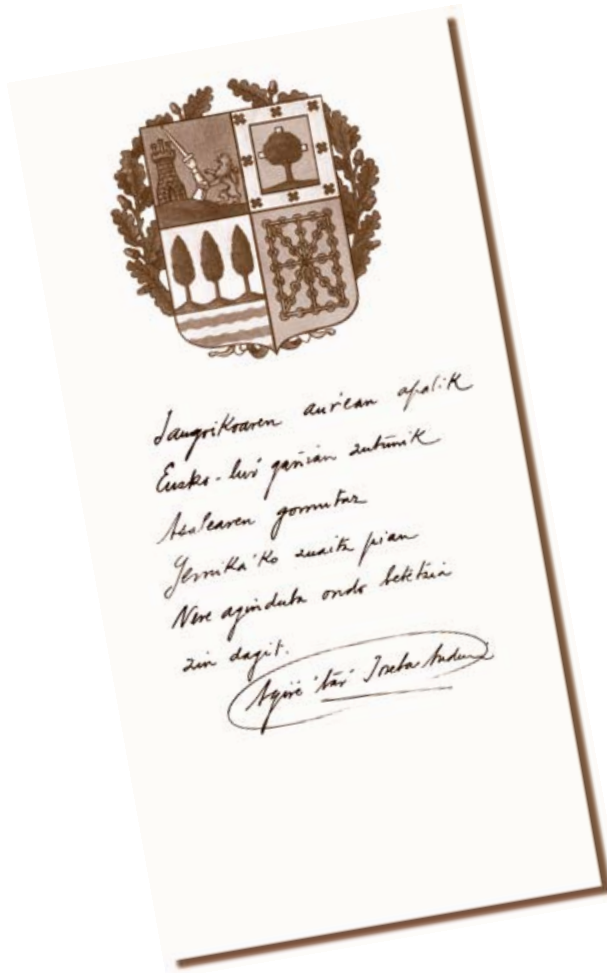 Jaungoikoaren aurŕean apalik
Eusko-luŕ gañian zutunik
Asabearen gomutaz
Gernika'ko zuaitz pian
Nere aginduba ondo betetzia
zin dagit.
Agiŕe'taŕ Joseba Andoni